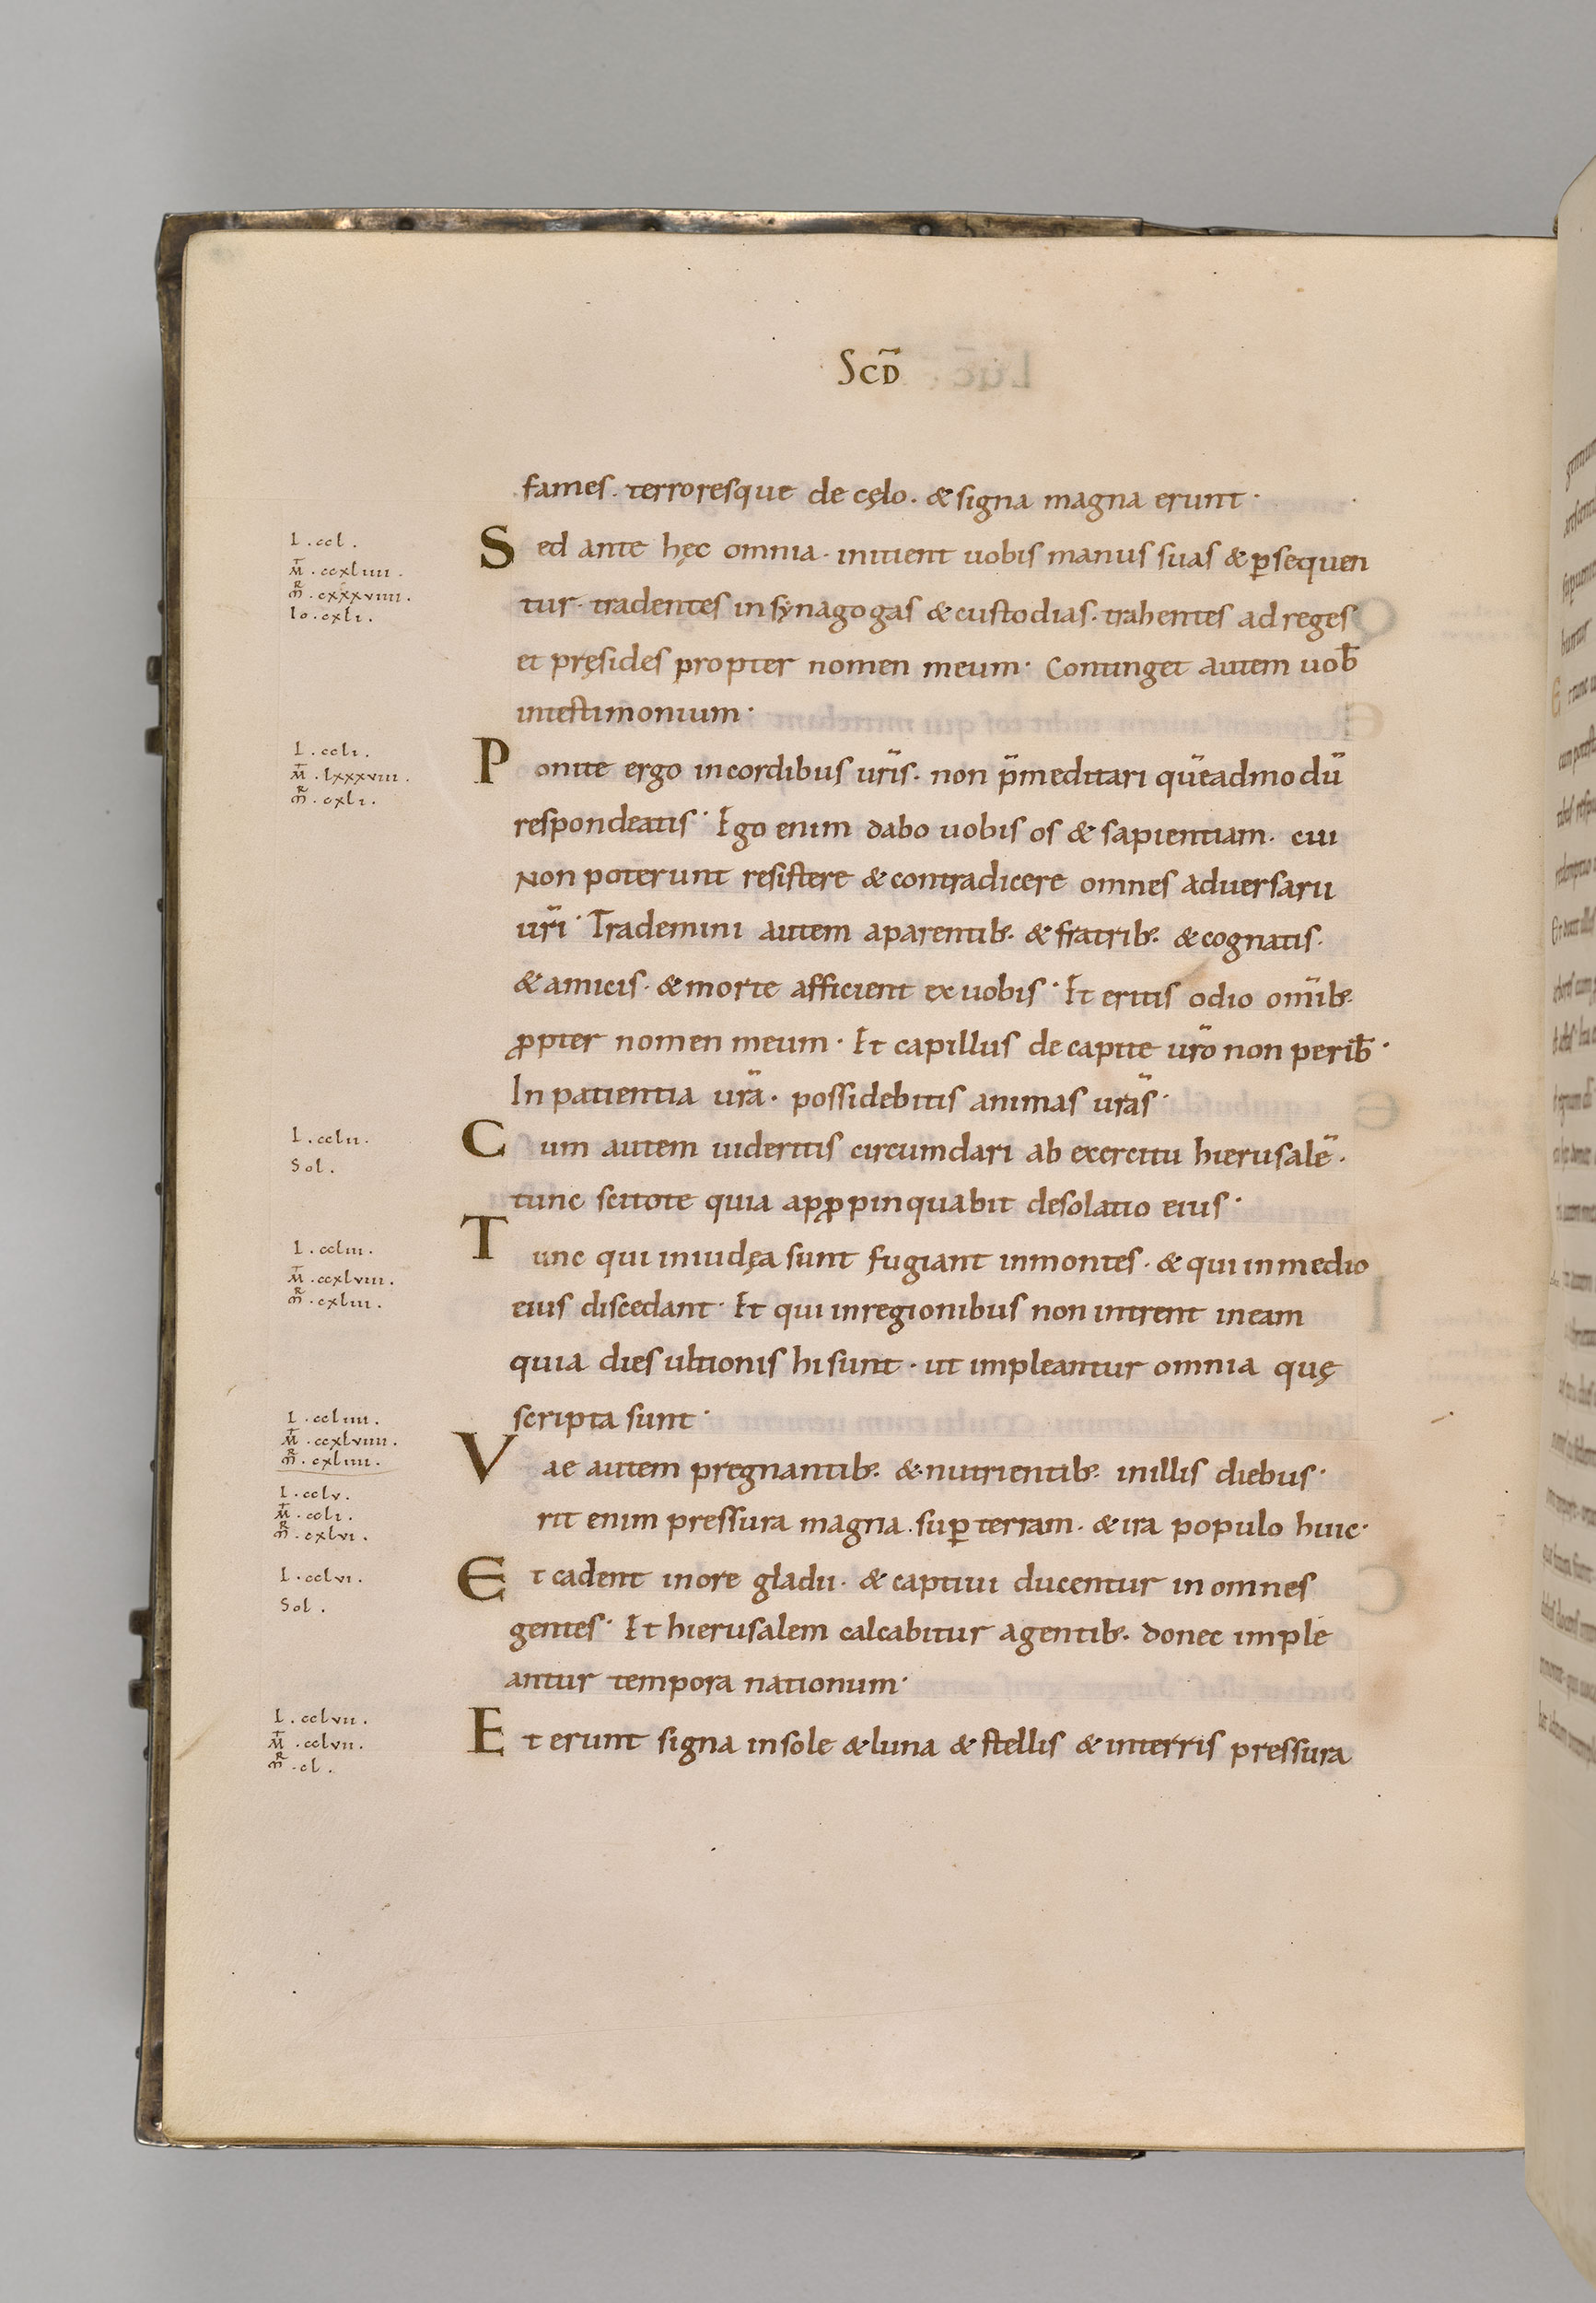 Scd̄
fames. terroresque de cęlo. & signa magna erunt.
L . ccl .
M̄ . ccxliiii .
m̄ . cxxxviiii .
Io . cxli .
Sed ante hęc omnia. initient uobis manus suas & p̲sequen
tur. tradentes in synagogas & custodias. trahentes ad reges
et pręsides propter nomen meum. Continget autem uob̄
intestimonium.
L . ccli .
M̄ . lxxxviii .
m̄ . cxli .
Ponite ergo in cordibus ur̄is. non p̄meditari quēadmodū
respondeatis. Ego enim dabo uobis os & sapientiam. cui
Non poterunt resistere & contradicere omnes aduersarii
ur̄i. Trademini autem aparentib. & fratrib. & cognatis.
& amicis. & morte afficient ex uobis. Et eritis odio om̄ib.
ꝓpter nomen meum. Et capillus de capite ur̄o non perib̄.
In patientia ur̄a. possidebitis animas ur̄as.
L . cclii .
Sol .
Cum autem uideritis circumdari ab exercitu hierusalē.
tunc scitote quia apꝓpinquabit desolatio eius.
L . ccliii .
M̄ . ccxlviii .
m̄ . cxliii .
Tunc qui iniudęa sunt fugiant inmontes. & qui inmedio
eius discedant. Et qui inregionibus non intrent ineam
quia dies ultionis hi sunt. ut impleantur omnia quę
scripta sunt.
L . ccliiii .
M̄ . ccxlviiii .
m̄ . cxliiii .
Vae autem pregnantib. & nutrientib. inillis diebus.
L . cclv .
M̄ . ccli .
m̄ . cxlvi .
rit enim pressura magna. sup̲ terram. & ira populo huic.
L . cclvi .
Sol .
Et cadent inore gladii. & captiui ducentur in omnes
gentes. Et hierusalem calcabitur agentib. donec imple
antur tempora nationum.
L . cclvii .
M̄ . cclvii .
m̄ . cl .
Et erunt signa insole & luna & stellis & interris pressura